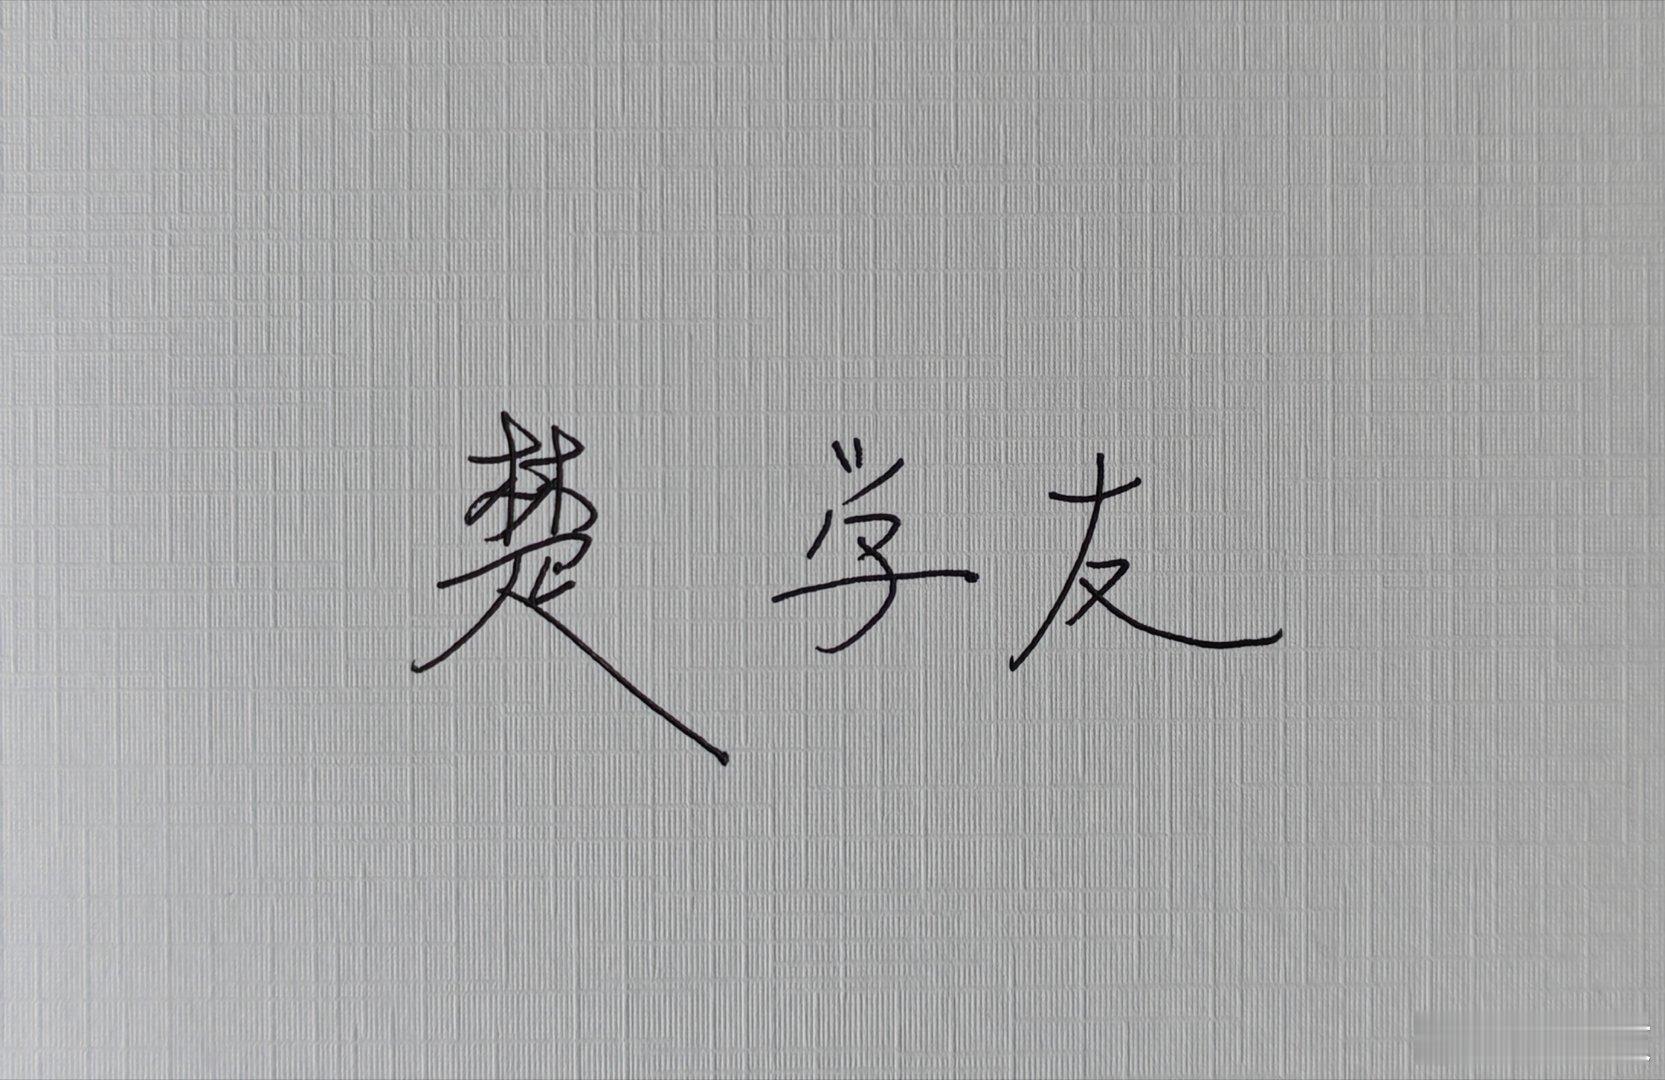 楚学友